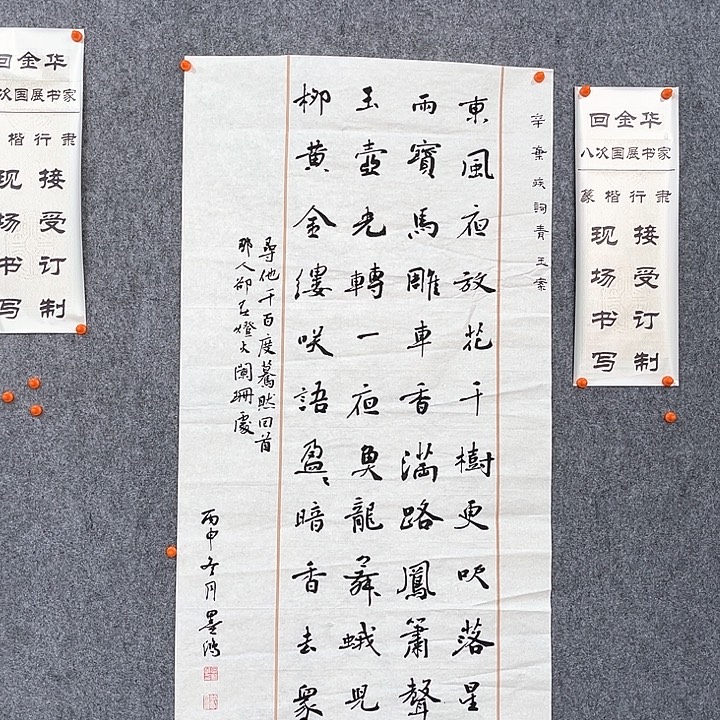 回金华
八次国展书家
篆楷行隶
现场书写
接受订制
辛棄疾詞青玉案
東風夜放花千樹更吹落星
雨寶馬雕車香滿路鳳簫聲
玉壺光轉一夜魚龍舞蛾兒
柳黄金縷咲語盈〻暗香去衆
尋他千百度驀然回首
那人卻在燈火闌珊處
丙申冬月墨鴻
回金华
次国展书家
楷行隶
现场书写
接受订制